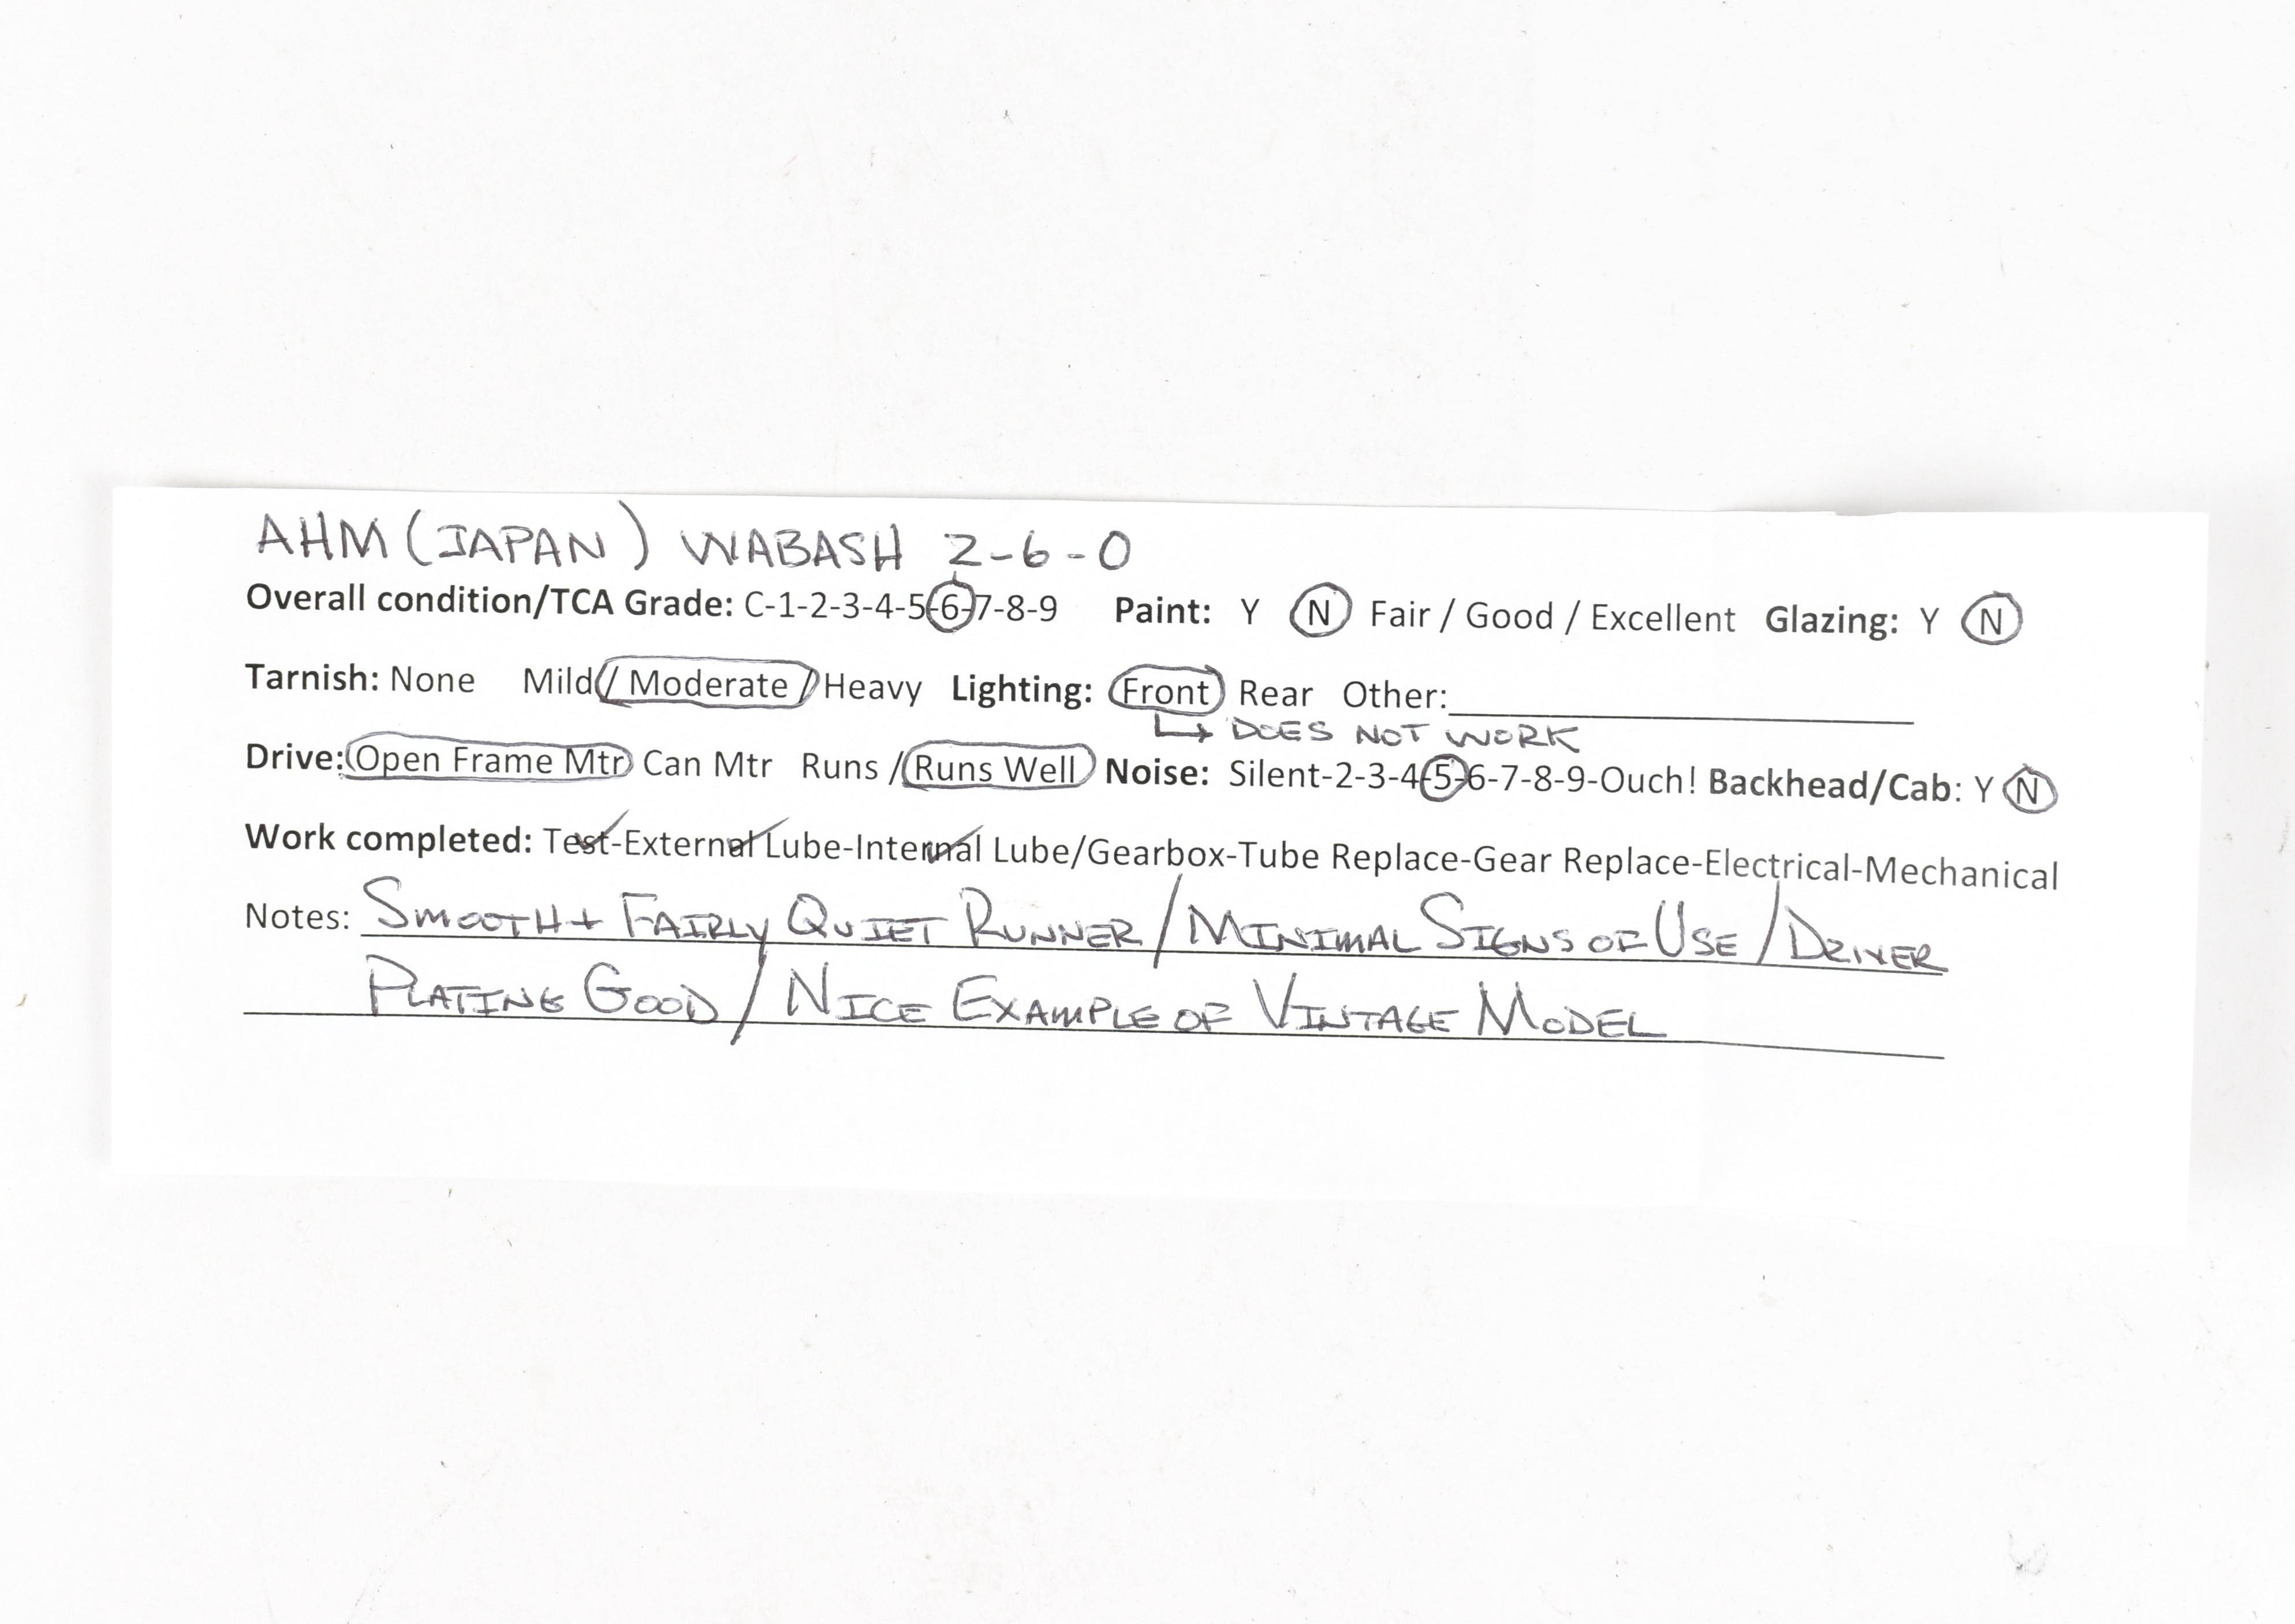 AHM (JAPAN) WABASH 2-6-0
Overall condition/TCA Grade: C-1-2-3-4-5-6-7-8-9 Paint: Y N Fair / Good / Excellent Glazing: Y N
Tarnish: None Mild / Moderate / Heavy Lighting: Front Rear Other:
DOES NOT WORK
Drive: Open Frame Mtr Can Mtr Runs / Runs Well Noise: Silent-2-3-4-5-6-7-8-9-Ouch! Backhead/Cab: Y N
Work completed: Test-External Lube-Internal Lube/Gearbox-Tube Replace-Gear Replace-Electrical-Mechanical
Notes: SMOOTH + FAIRLY QUIET RUNNER / MINIMAL SIGNS OF USE / DRIVER
PLATING GOOD / NICE EXAMPLE OF VINTAGE MODEL